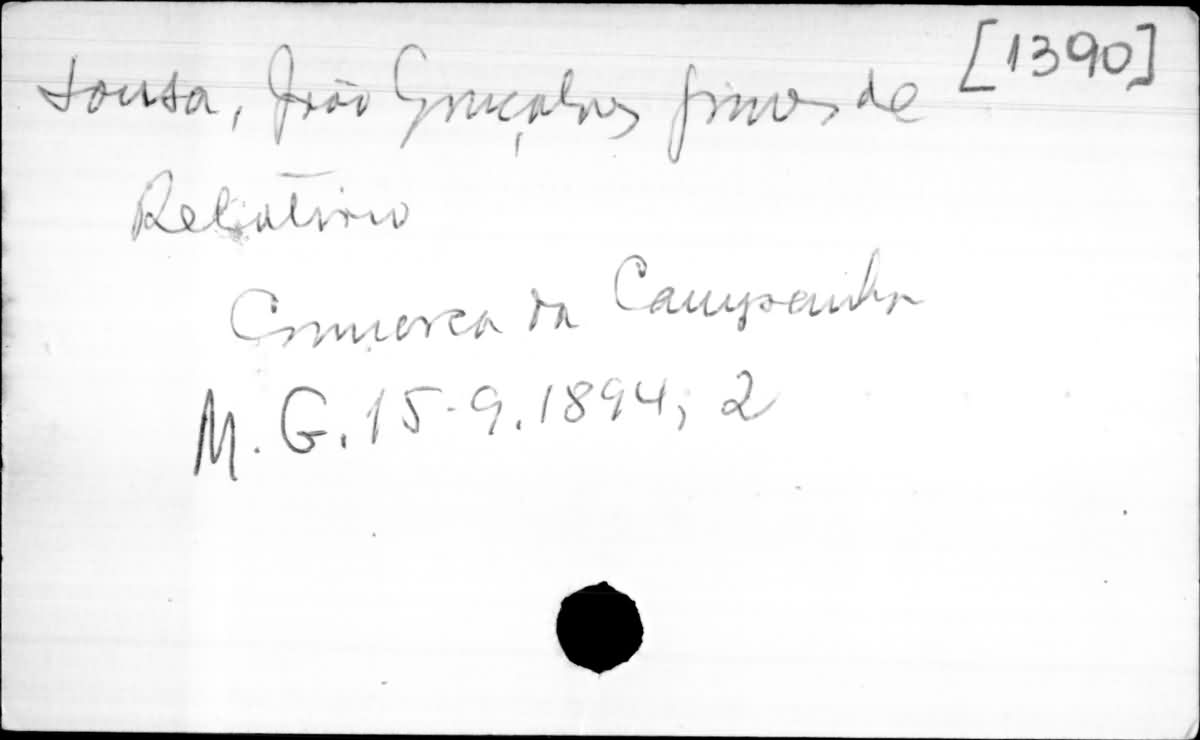 Sousa, João Gonçalves Gomes de [1390]
Relatório
Comarca da Campanha
M. G. 15-9.1894, 2